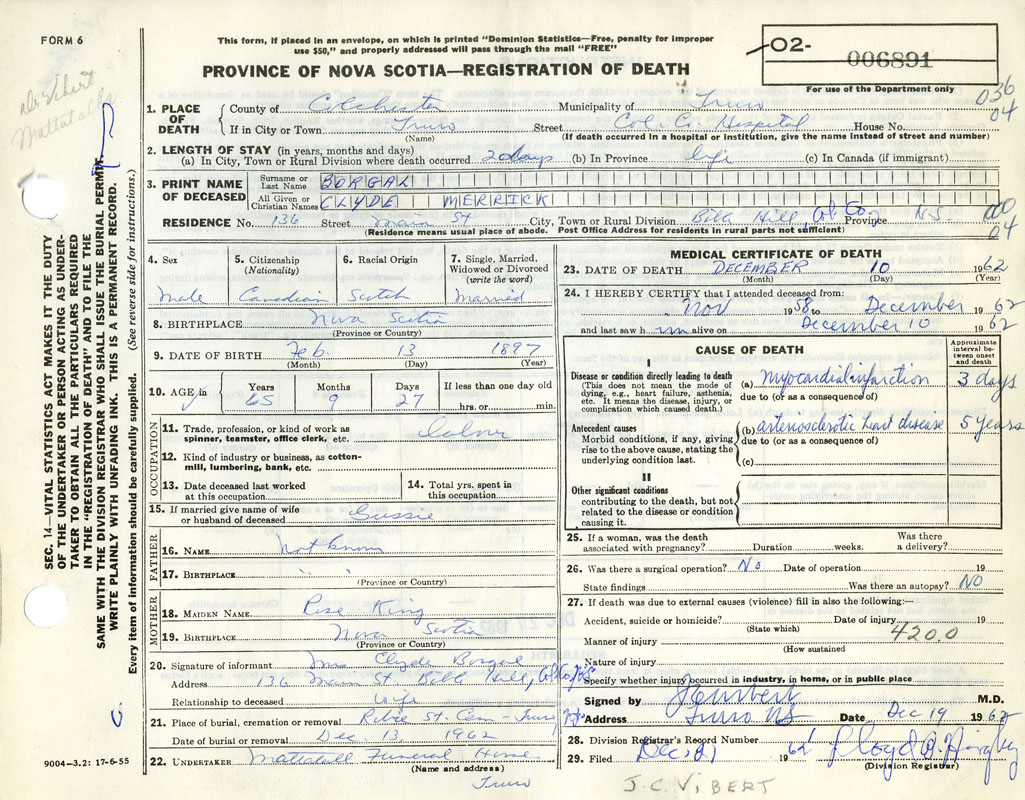 FORM 6
This form, if placed in an envelope, on which is printed "Dominion Statistics—Free, penalty for improper
use $50," and properly addressed will pass through the mail "FREE"
PROVINCE OF NOVA SCOTIA—REGISTRATION OF DEATH
02-
006891
For use of the Department only
036
04
1. PLACE OF DEATH
County of Colchester Municipality of Truro
If in City or Town Truro Street Col. Co. Hospital House No.
(Name) (If death occurred in a hospital or institution, give the name instead of street and number)
2. LENGTH OF STAY (in years, months and days)
(a) In City, Town or Rural Division where death occurred 2 days (b) In Province life (c) In Canada (if immigrant)
3. PRINT NAME OF DECEASED
Surname or Last Name BORGAL
All Given or Christian Names CLYDE MERRICK
RESIDENCE No. 136 Street Main St City, Town or Rural Division Bible Hill, Col. Co. Province NS
04
(Residence means usual place of abode. Post Office Address for residents in rural parts not sufficient)
4. Sex
Male
5. Citizenship (Nationality)
Canadian
6. Racial Origin
Scotch
7. Single, Married, Widowed or Divorced (write the word)
Married
8. BIRTHPLACE Nova Scotia
(Province or Country)
9. DATE OF BIRTH Feb 13 1897
(Month) (Day) (Year)
10. AGE in
Years Months Days If less than one day old
65 9 27 hrs. or min.
OCCUPATION
11. Trade, profession, or kind of work as
spinner, teamster, office clerk, etc. Labour
12. Kind of industry or business, as cotton-
mill, lumbering, bank, etc.
13. Date deceased last worked
at this occupation
14. Total yrs. spent in
this occupation
15. If married give name of wife
or husband of deceased Gussie
FATHER
16. NAME not known
17. BIRTHPLACE " "
(Province or Country)
MOTHER
18. MAIDEN NAME Rose King
19. BIRTHPLACE Nova Scotia
(Province or Country)
20. Signature of informant Mrs Clyde Borgal
Address 136 Main St Bible Hill, Col. Co. N.S.
Relationship to deceased wife
21. Place of burial, cremation or removal Robie St. Cem - Truro NS
Date of burial or removal Dec. 13, 1962
22. UNDERTAKER Mattatall Funeral Home
(Name and address)
Truro
MEDICAL CERTIFICATE OF DEATH
23. DATE OF DEATH DECEMBER 10 1962
(Month) (Day) (Year)
24. I HEREBY CERTIFY that I attended deceased from:
Nov 1958 to December 1962
and last saw him alive on December 10 1962
CAUSE OF DEATH
Approximate interval between onset and death
I
Disease or condition directly leading to death
(This does not mean the mode of
dying, e.g., heart failure, asthenia,
etc. It means the disease, injury, or
complication which caused death.)
(a) myocardial infarction 3 days
due to (or as a consequence of)
Antecedent causes
Morbid conditions, if any, giving
rise to the above cause, stating the
underlying condition last.
(b) arteriosclerotic heart disease 5 years
due to (or as a consequence of)
(c)
II
Other significant conditions
contributing to the death, but not
related to the disease or condition
causing it.
25. If a woman, was the death
associated with pregnancy? Duration weeks. Was there
a delivery?
26. Was there a surgical operation? No Date of operation 19
State findings Was there an autopsy? NO
27. If death was due to external causes (violence) fill in also the following:—
Accident, suicide or homicide? Date of injury 19
(State which)
420.0
Manner of injury
(How sustained
Nature of injury
Specify whether injury occurred in industry, in home, or in public place
Signed by JCVibert M.D.
Address Truro NS Date Dec 19 1962
28. Division Registrar's Record Number
29. Filed Dec. 21 1962 Lloyd
(Division Registrar)
J.C. VIBERT
9004—3.2: 17-6-55
SEC. 14—VITAL STATISTICS ACT MAKES IT THE DUTY
OF THE UNDERTAKER OR PERSON ACTING AS UNDER-
TAKER TO OBTAIN ALL THE PARTICULARS REQUIRED
IN THE "REGISTRATION OF DEATH" AND TO FILE THE
SAME WITH THE DIVISION REGISTRAR WHO SHALL ISSUE THE BURIAL PERMIT.
WRITE PLAINLY WITH UNFADING INK. THIS IS A PERMANENT RECORD.
Every item of information should be carefully supplied. (See reverse side for instructions.)